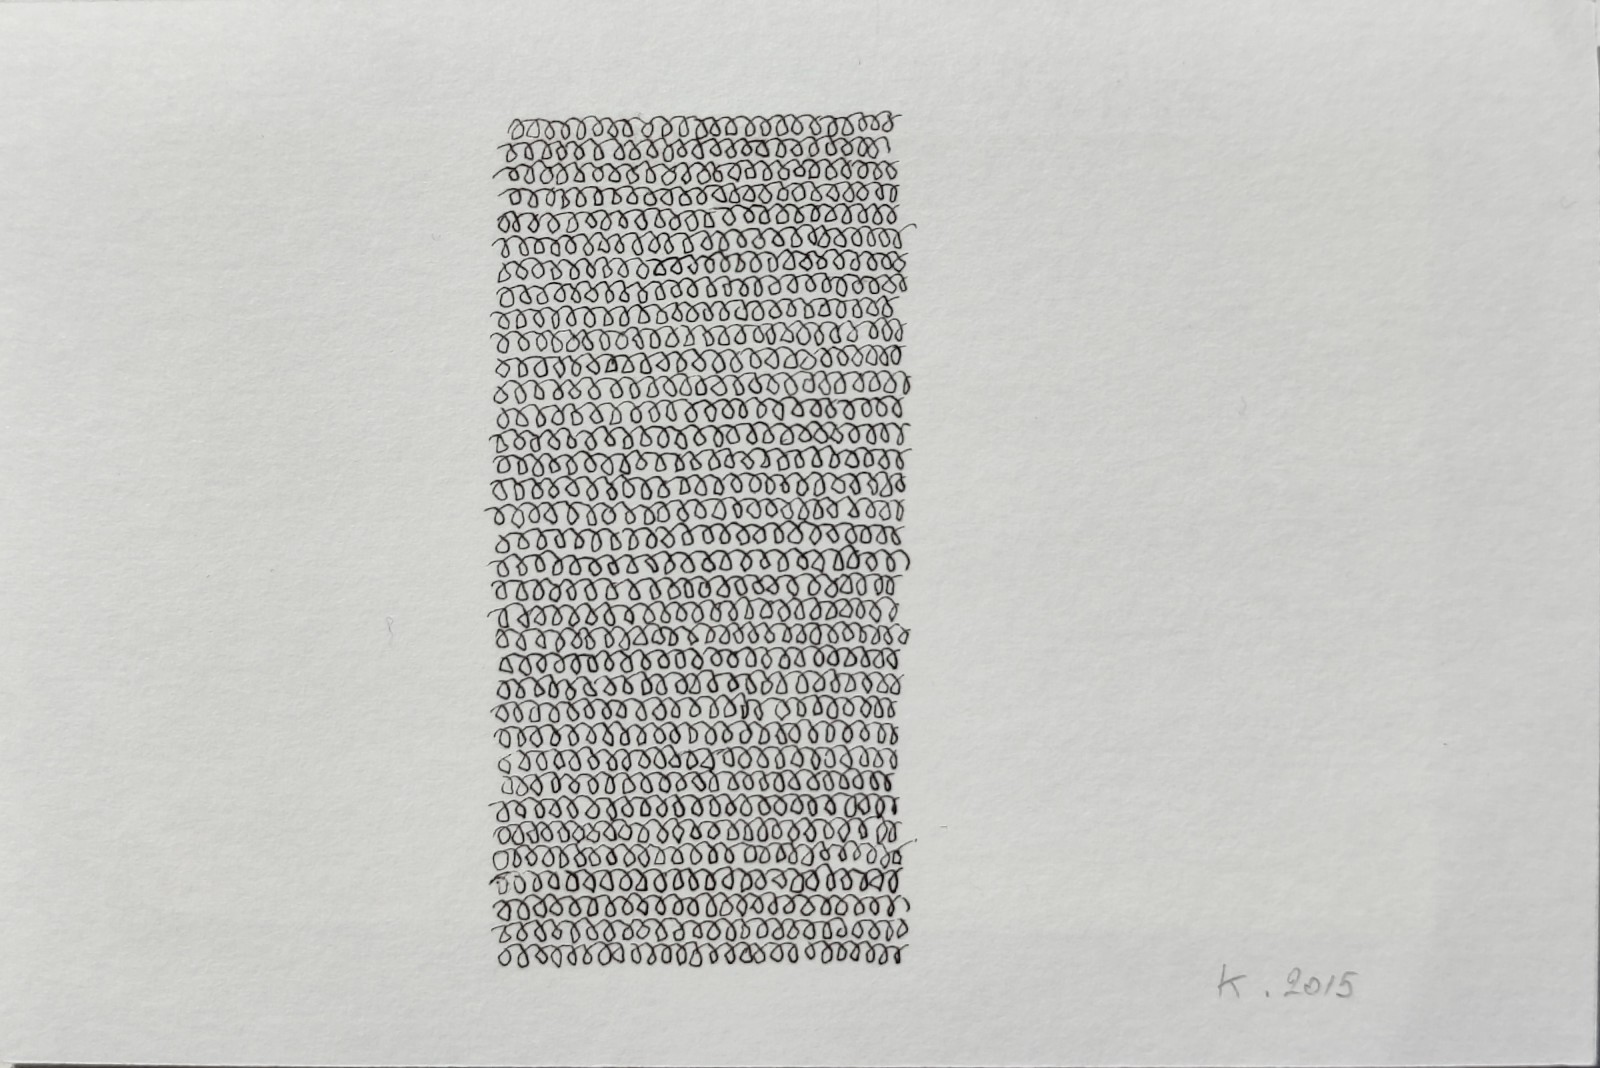 K . 2015